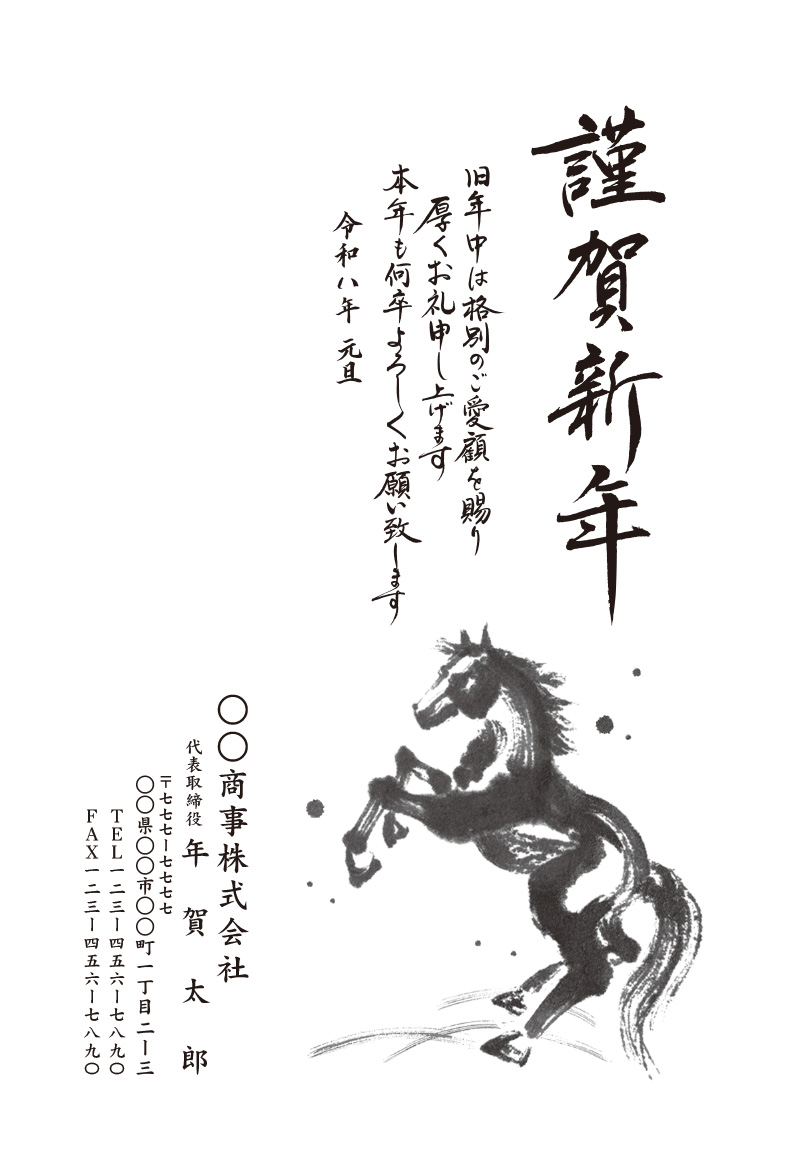 謹賀新年
旧年中は格別のご愛顧を賜り
厚くお礼申し上げます
本年も何卒よろしくお願い致します
令和八年 元旦
〇〇商事株式会社
代表取締役 年賀太郎
〒七七七ー七七七七
〇〇県〇〇市〇〇町一丁目二ー三
TEL一二三ー四五六ー七八九〇
FAX一二三ー四五六ー七八九〇